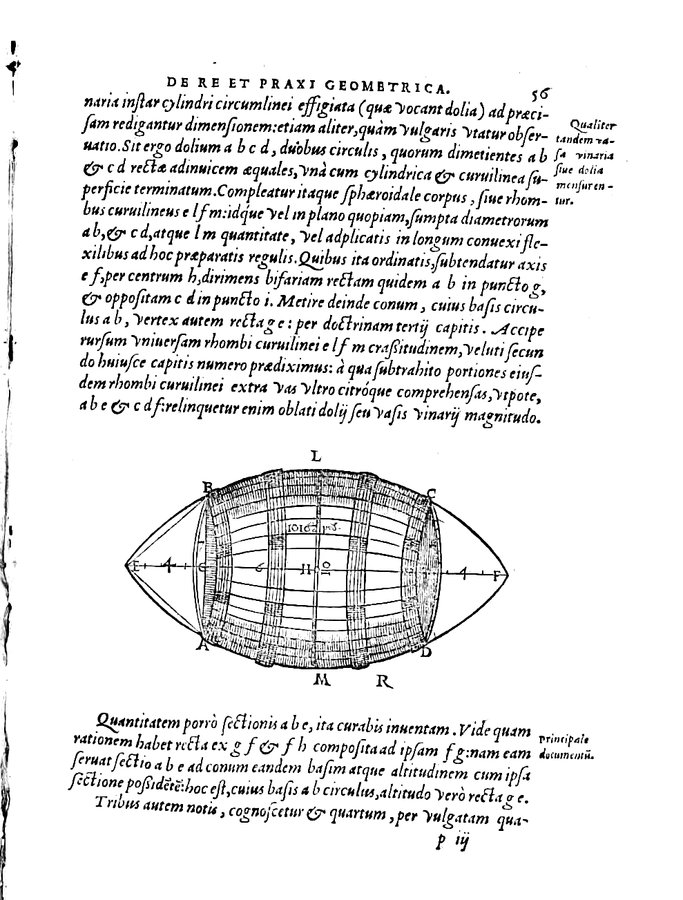 DE RE ET PRAXI GEOMETRICA.
56
naria inſtar cylindri circumlinei effigiata (quæ vocant dolia) ad præci-
ſam redigantur dimenſionem: etiam aliter, quàm vulgaris vtatur obſer-
uatio. Sit ergo dolium a b c d, duobus circulis, quorum dimetientes a b
& c d rectæ adinuicem æquales, vnà cum cylindrica & curuilinea ſu-
perficie terminatum. Compleatur itaque ſphæroidale corpus, ſiue rhom-
bus curuilineus e l f m: idque vel in plano quopiam, ſumpta diametrorum
a b, & c d, atque l m quantitate, vel adplicatis in longum conuexi fle-
xilibus ad hoc præparatis regulis. Quibus ita ordinatis, ſubtendatur axis
e f, per centrum h, dirimens bifariam rectam quidem a b in puncto g,
& oppoſitam c d in puncto i. Metire deinde conum, cuius baſis circu-
lus a b, vertex autem recta g e: per doctrinam tertij capitis. Accipe
rurſum vniuerſam rhombi curuilinei e l f m craßitudinem, veluti ſecun
do huiuſce capitis numero prædiximus: à qua ſubtrahito portiones eiuſ-
dem rhombi curuilinei extra vas vltro citróque comprehenſas, vtpote,
a b e & c d f: relinquetur enim oblati dolij ſeu vaſis vinarij magnitudo.
Qualiter
tandem va-
ſa vinaria
ſiue dolia
menſuren-
tur.
L
B
C
10162
E
4
G
6
H
10
4
F
A
D
M
R
Quantitatem porrò ſectionis a b e, ita curabis inuentam. Vide quam
rationem habet recta ex g f & f h compoſita ad ipſam f g: nam eam
ſeruat ſectio a b e ad conum eandem baſim atque altitudinem cum ipſa
ſectione poſsidētē: hoc eſt, cuius baſis a b circulus, altitudo verò recta g e.
Tribus autem notis, cognoſcetur & quartum, per vulgatam qua-
principale
documentū.
p iij